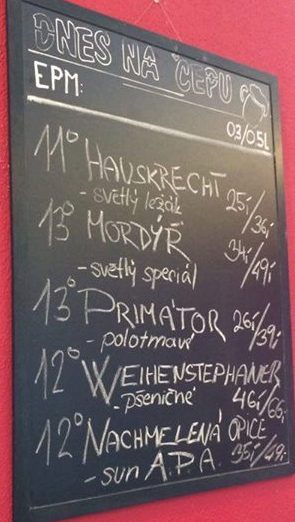 DNES NA ČEPU
EPM:
0,3/0,5L
11° HAUSKRECHT 25,-/36,-
- světlý ležák
13° MORDÝŘ 34,-/49,-
- světlý speciál
13° PRIMÁTOR 26,-/39,-
- polotmavý
12° WEIHENSTEPHANER
- pšeničné 46,-/66,-
12° NACHMELENÁ OPICE
- sun A.P.A. 35,-/49,-